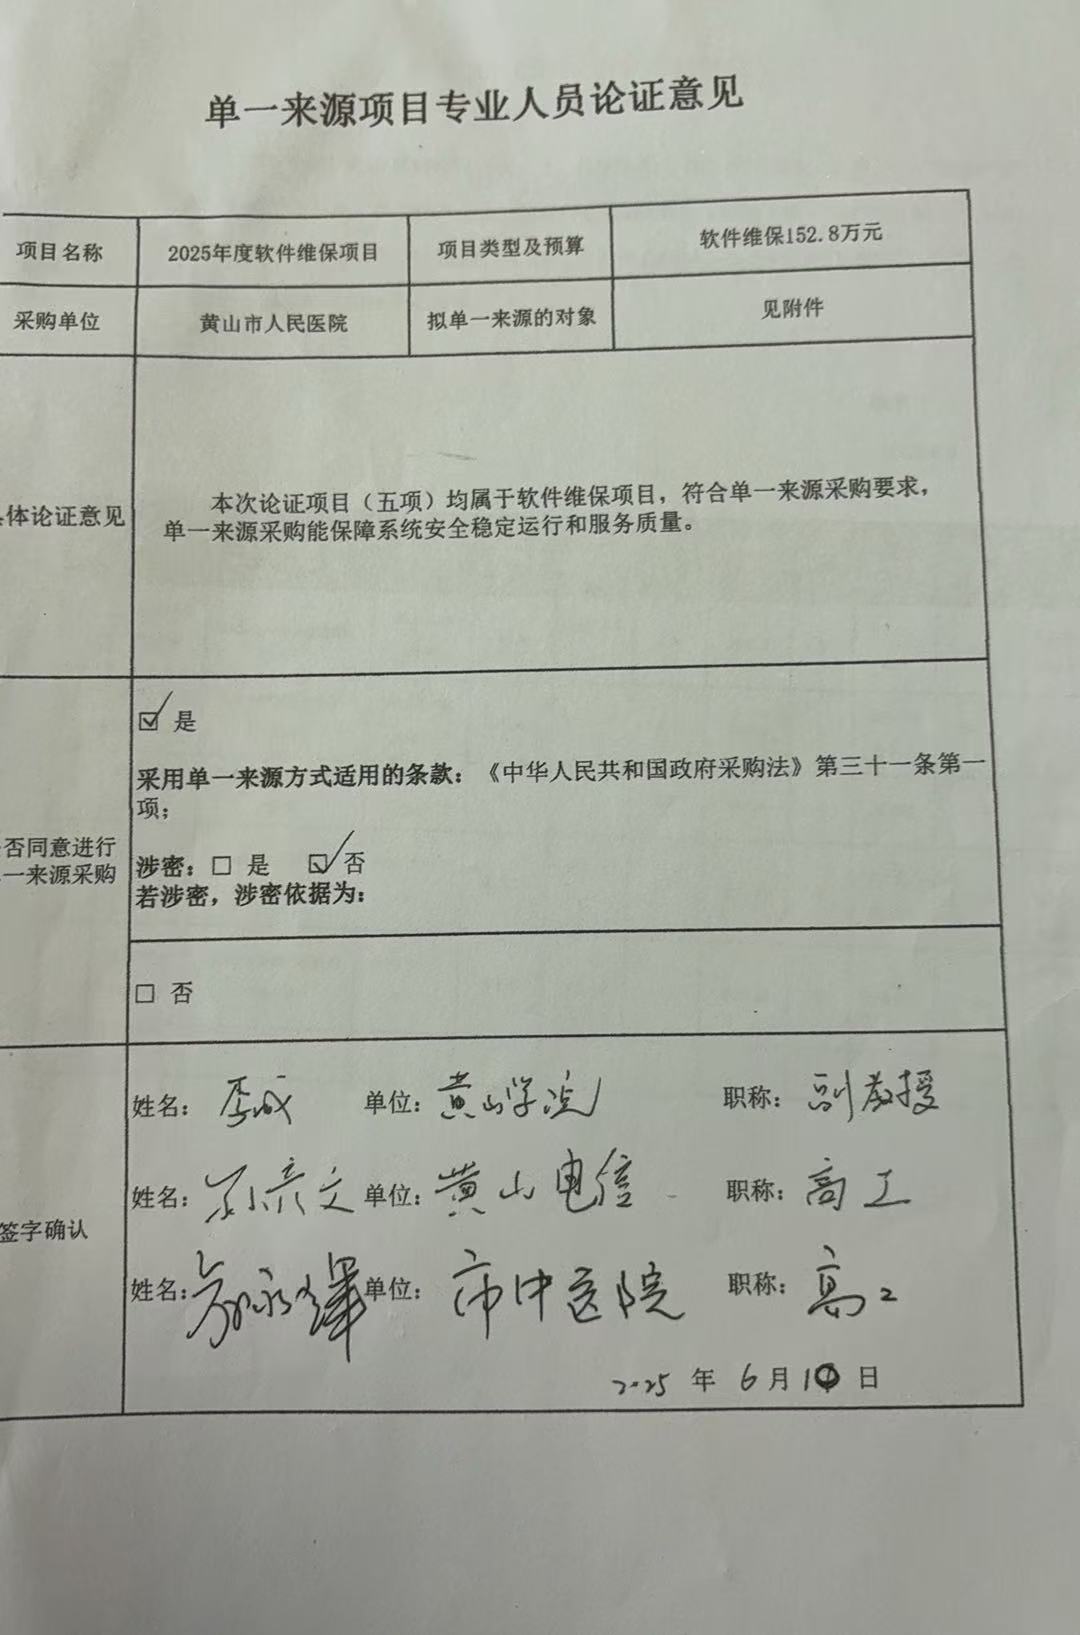 单一来源项目专业人员论证意见
项目名称 2025年度软件维保项目 项目类型及预算 软件维保152.8万元
采购单位 黄山市人民医院 拟单一来源的对象 见附件
体论证意见
本次论证项目（五项）均属于软件维保项目，符合单一来源采购要求，
单一来源采购能保障系统安全稳定运行和服务质量。
否同意进行
一来源采购
☑ 是
采用单一来源方式适用的条款：《中华人民共和国政府采购法》第三十一条第一
项；
涉密：□ 是 ☑ 否
若涉密，涉密依据为：
□ 否
签字确认
姓名： 李成 单位：黄山学院 职称：副教授
姓名： 单位：黄山电信 职称：高工
姓名： 单位： 市中医院 职称：高工
2025 年 6 月 10 日